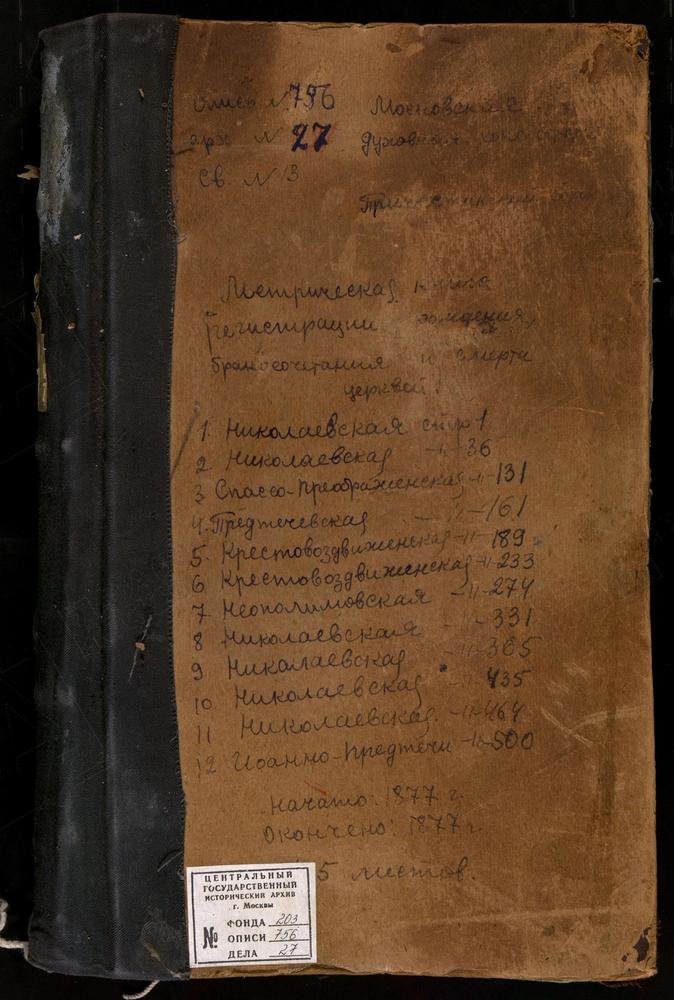 опись № 756 Московская
арх № 27 духовная
св. № 3
Метрическая книга
регистрации рождения,
бракосочетания и смерти
церквей:
1. Николаевская стр 1
2 Николаевская -"- 36
3 Спассо-Преображенская -"- 131
4. Предтечевская -"- 161
5. Крестовоздвиженская -"- 189
6 Крестовоздвиженская -"- 233
7 Неополимовская -"- 274
8 Николаевская -"- 331
9 Николаевская -"- 365
10 Николаевская -"- 435
11 Николаевская -"- 464
12 Иоанно-Предтечи -"- 500
начато: 1877 г.
Окончено: 1877 г.
5 листов.
ЦЕНТРАЛЬНЫЙ
ГОСУДАРСТВЕННЫЙ
ИСТОРИЧЕСКИЙ АРХИВ
г. Москвы
№ ФОНДА 203
ОПИСИ 756
ДЕЛА 27